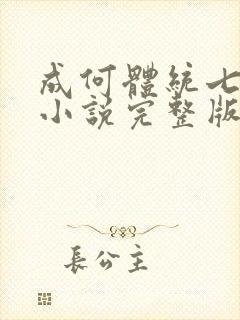 成何體統七
小說完整版
長公主